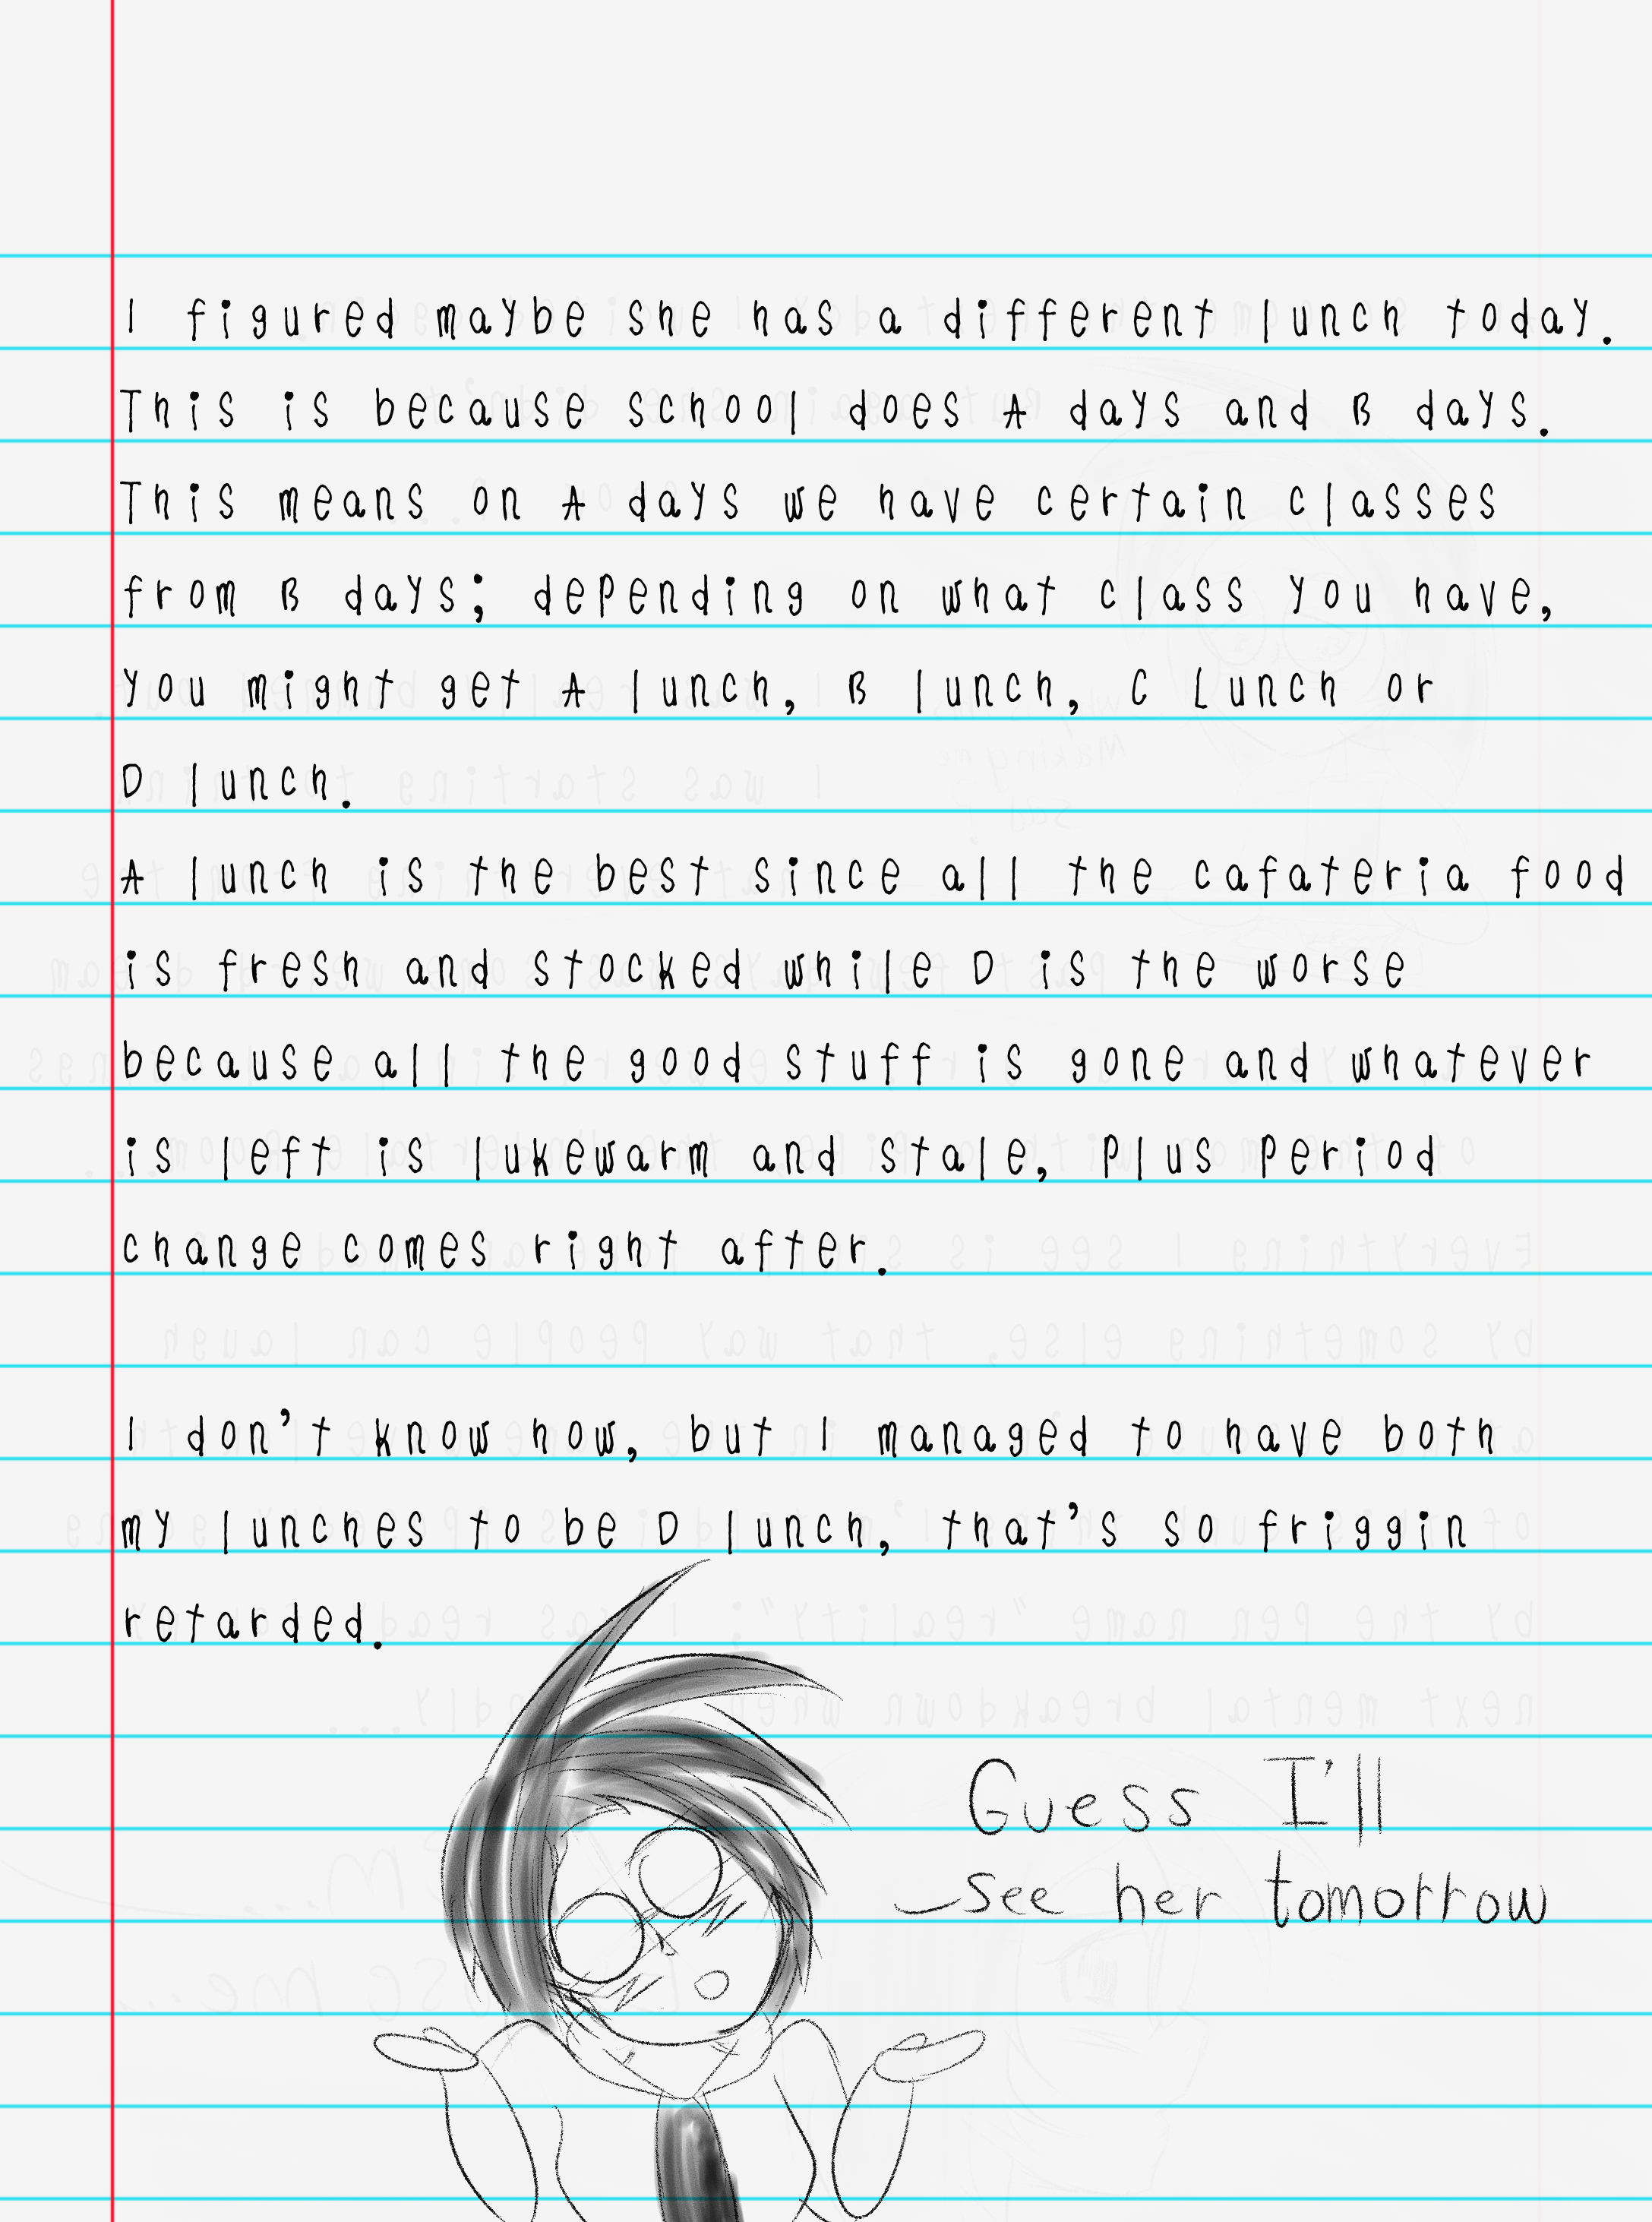 I figured maybe she has a different lunch today.
This is because school does A days and B days.
This means on A days we have certain classes
from B days; depending on what class you have,
you might get A lunch, B lunch, C Lunch or
D lunch.
A lunch is the best since all the cafateria food
is fresh and stocked while D is the worse
because all the good stuff is gone and whatever
is left is lukewarm and stale, plus period
change comes right after.
I don't know how, but I managed to have both
my lunches to be D lunch, that's so friggin
retarded.
Guess I'll
see her tomorrow